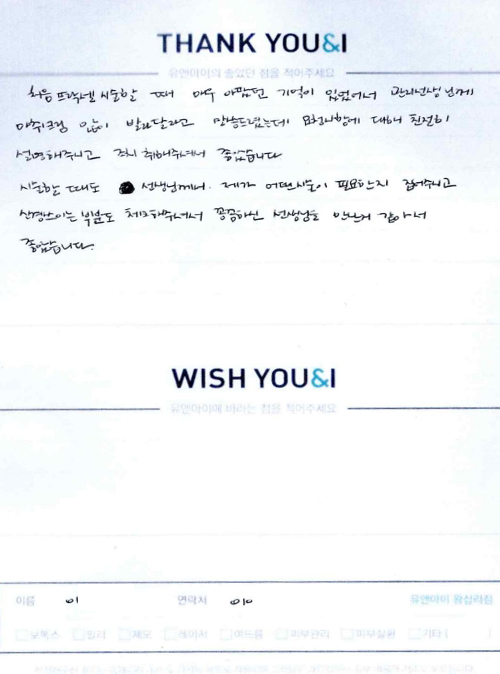 THANK YOU&I
유앤아이의 좋았던 점을 적어주세요
처음 프락셀 시술할 때 매우 아팠던 기억이 있었어서 관리선생님께
마취크림 많이 발라달라고 말씀드렸는데 요청사항에 대해 친절히
설명해주시고 조치 취해주셔서 좋았습니다
시술할 때도 선생님께서 제가 어떤시술이 필요한지 짚어주시고
신경쓰이는 부분도 체크해주셔서 꼼꼼하신 선생님을 만난거 같아서
좋았습니다.
WISH YOU&I
유앤아이에 바라는 점을 적어주세요
이름 이 연락처 010 유앤아이 왕십리점
보톡스 필러 제모 레이저 여드름 피부관리 피부질환 기타 ( )